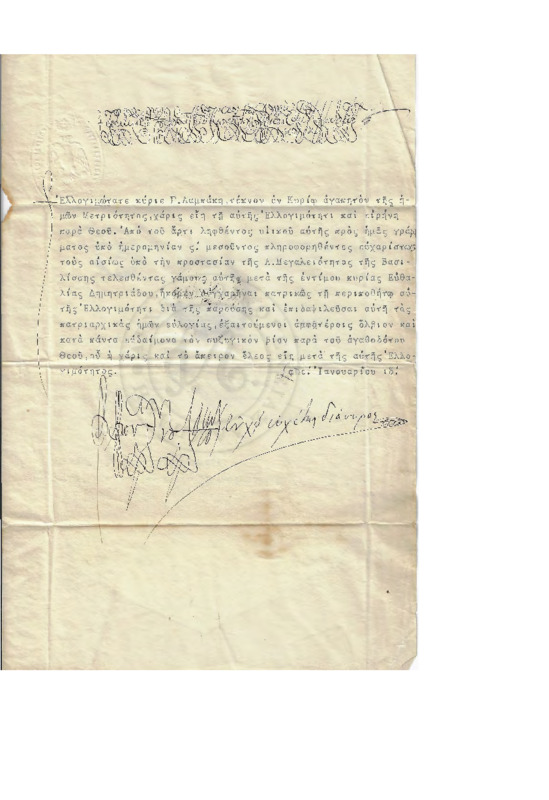 Ἐλλογιμώτατε κύριε Γ. Λαμπάκη, τέκνον ἐν Κυρίῳ ἀγαπητὸν τῆς ἡ-
μῶν Μετριότητος, χάρις εἴη τῇ αὐτῆς Ἐλλογιμότητι καὶ εἰρήνη
παρὰ Θεοῦ. Ἀπὸ τοῦ ἄρτι ληφθέντος υἱικοῦ αὐτῆς πρὸς ἡμᾶς γράμ
ματος ὑπὸ ἡμερομηνίαν ς΄. μεσοῦντος πληροφορηθέντες εὐχαρίστως
τοὺς αἰσίως ὑπὸ τὴν προστασίαν τῆς Α. Μεγαλειότητος τῆς Βασι-
λίσσης τελεσθέντας γάμους αὐτῆς μετὰ τῆς ἐντίμου κυρίας Εὐθα-
λίας Δημητριάδου, πατρικῶς τῇ περιποθήτῳ αὐ-
τῆς Ἐλλογιμότητι διὰ τῆς παρούσης καὶ ἐπιδαψιλεῦσαι αὐτῇ τὰς
πατριαρχικὰς ἡμῶν εὐλογίας, ἐξαιτούμενοι ἀμφοτέροις ὄλβιον καὶ
κατὰ πάντα εὐδαίμονα τὸν συζυγικὸν βίον παρὰ τοῦ ἀγαθοδότου
Θεοῦ, οὗ ἡ χάρις καὶ τὸ ἄπειρον ἔλεος εἴη μετὰ τῆς αὐτῆς Ἐλλο-
γιμότητος. Ἰανουαρίου ιδ΄
εὐχέτης διάπυρος